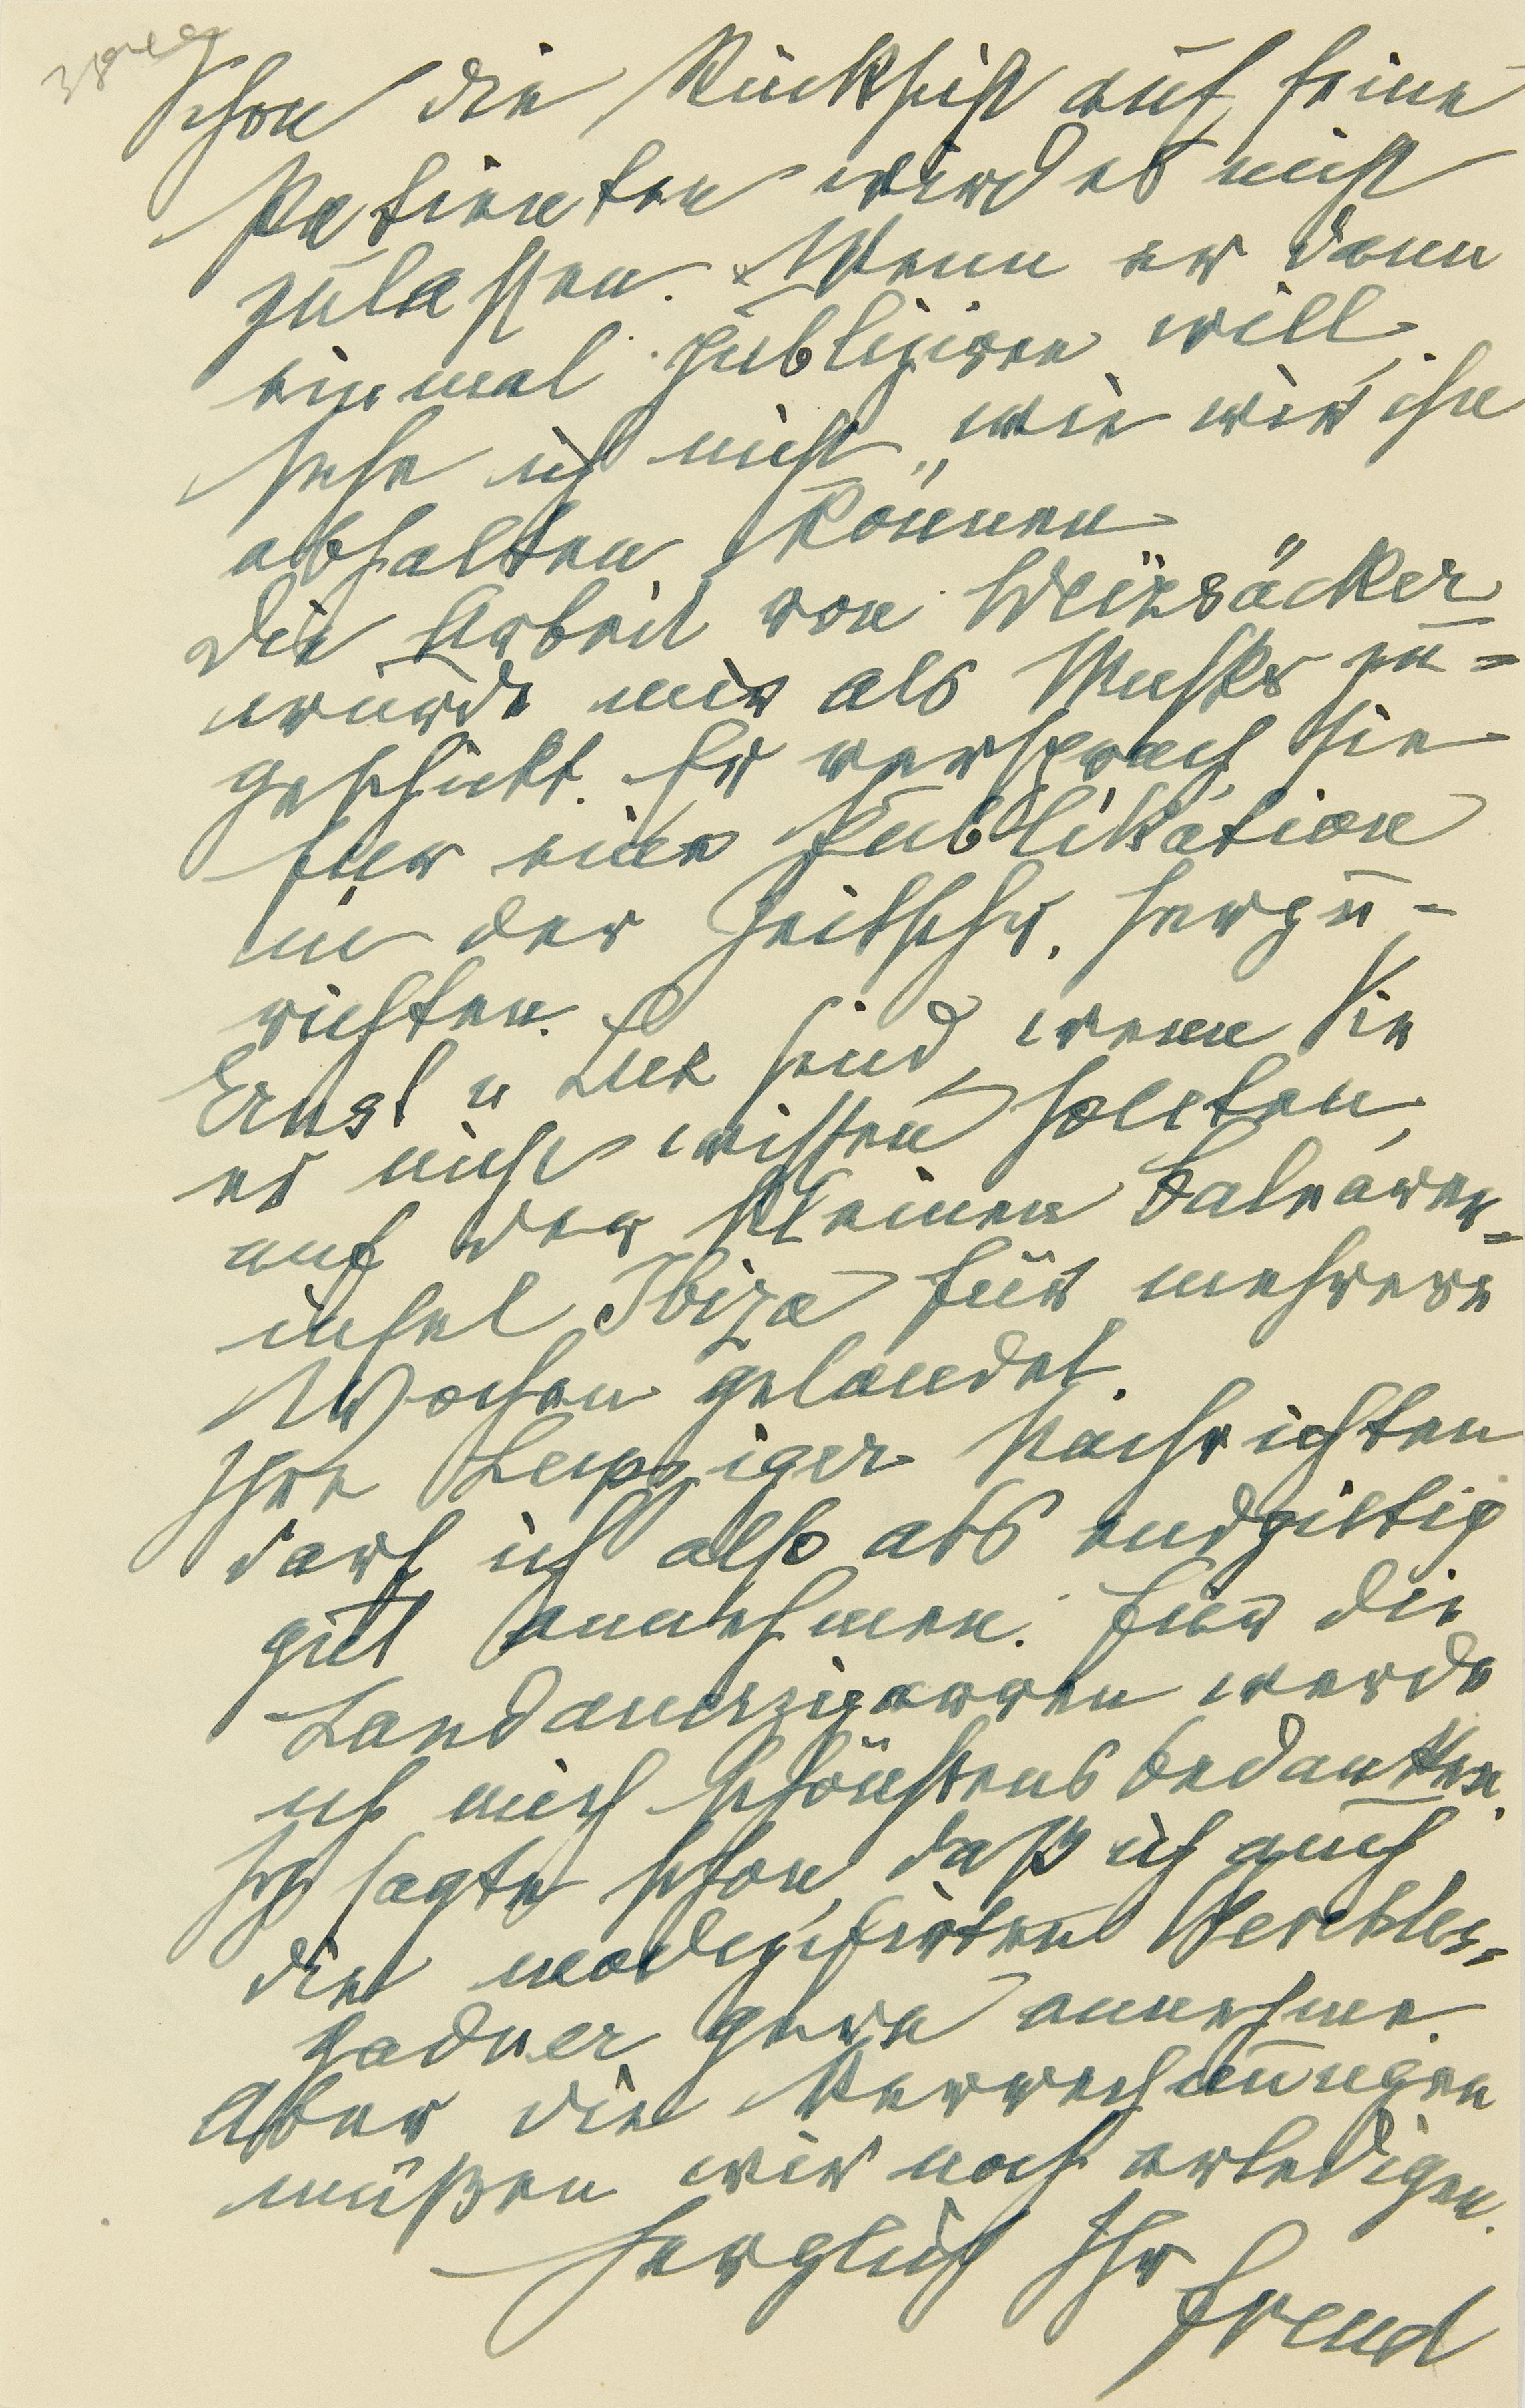 Schon die Rücksicht auf seine
Patienten wird es nicht
zulassen. Wenn er dann
einmal publiziren will,
sehe ich nicht, wie wir ihn
abhalten können.
Die Arbeit von Weizsäcker
wurde mir als Muskr zu=
geschickt. Er versprach sie
für eine Publikation
in der Zeitschr. herzu-
richten.
Ernst u Lux sind, wenn Sie
es nicht wissen sollten,
auf der kleinen Balearen=
insel Ibiza für mehrere
Wochen gelandet.
Ihre Leipziger Nachrichten
darf ich also als endgiltig
gut annehmen. Für die
Landauerzigarren werde
ich mich schönstens bedanken.
Ich sagte schon, daß ich auch
die modifizirten Berchtes=
gadner gern annehme.
Aber die Verrechnungen
müßen wir noch erledigen.
Herzlich Ihr
Freud